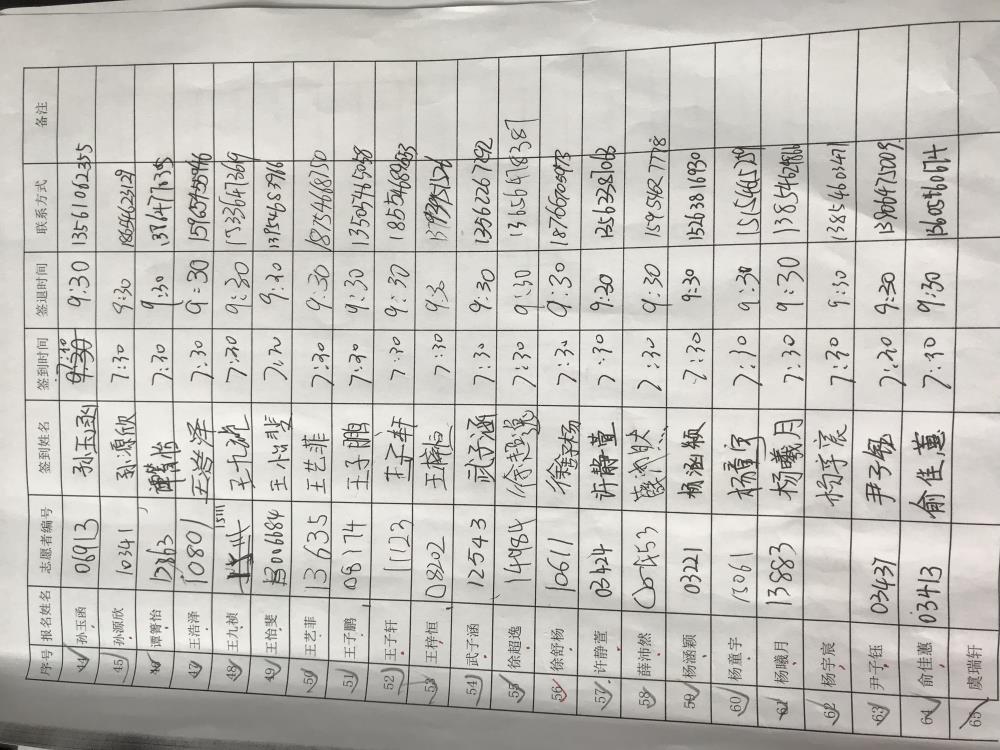 序号 报名姓名 志愿者编号 签到姓名 签到时间 签退时间 联系方式 备注
44 孙玉函 06913 孙玉函 7:30 9:30 13561062355
45 孙源欣 10341 孙源欣 7:30 9:30 18654623129
46 谭箐怡 12863 谭箐怡 7:30 9:30
47 王浩泽 10801 王浩泽 7:30 9:30
48 王九祯 15111 王九祯 7:30 9:30 15336473619
49 王怡斐 006684 王怡斐 7:30 9:30 13954683966
50 王艺菲 13635 王艺菲 7:30 9:30 18754668750
51 王子鹏 08174 王子鹏 7:30 9:30 13505465058
52 王子轩 11123 王子轩 7:30 9:30
53 王梓恒 08202 王梓恒 7:30 9:30
54 武子涵 12543 武子涵 7:30 9:30 13562267892
55 徐超逸 14984 徐超逸 7:30 9:30 13656478387
56 徐舒杨 10611 徐舒杨 7:30 9:30 18766005973
57 许静萱 03424 许静萱 7:30 9:30 13563381063
58 薛沛然 薛沛然 7:30 9:30 15958627778
59 杨涵颖 03221 杨涵颖 7:30 9:30 15263816930
60 杨童宇 15061 杨童宇 7:30 9:30
61 杨曦月 13883 杨曦月 7:30 9:30 13854629866
62 杨宇宸 杨宇宸 7:30 9:30 13854603471
63 尹子钰 03437 尹子钰 7:30 9:30 13966475009
64 俞佳蕙 03413 俞佳蕙 7:30 9:30 13605466674
65 虞瑞轩